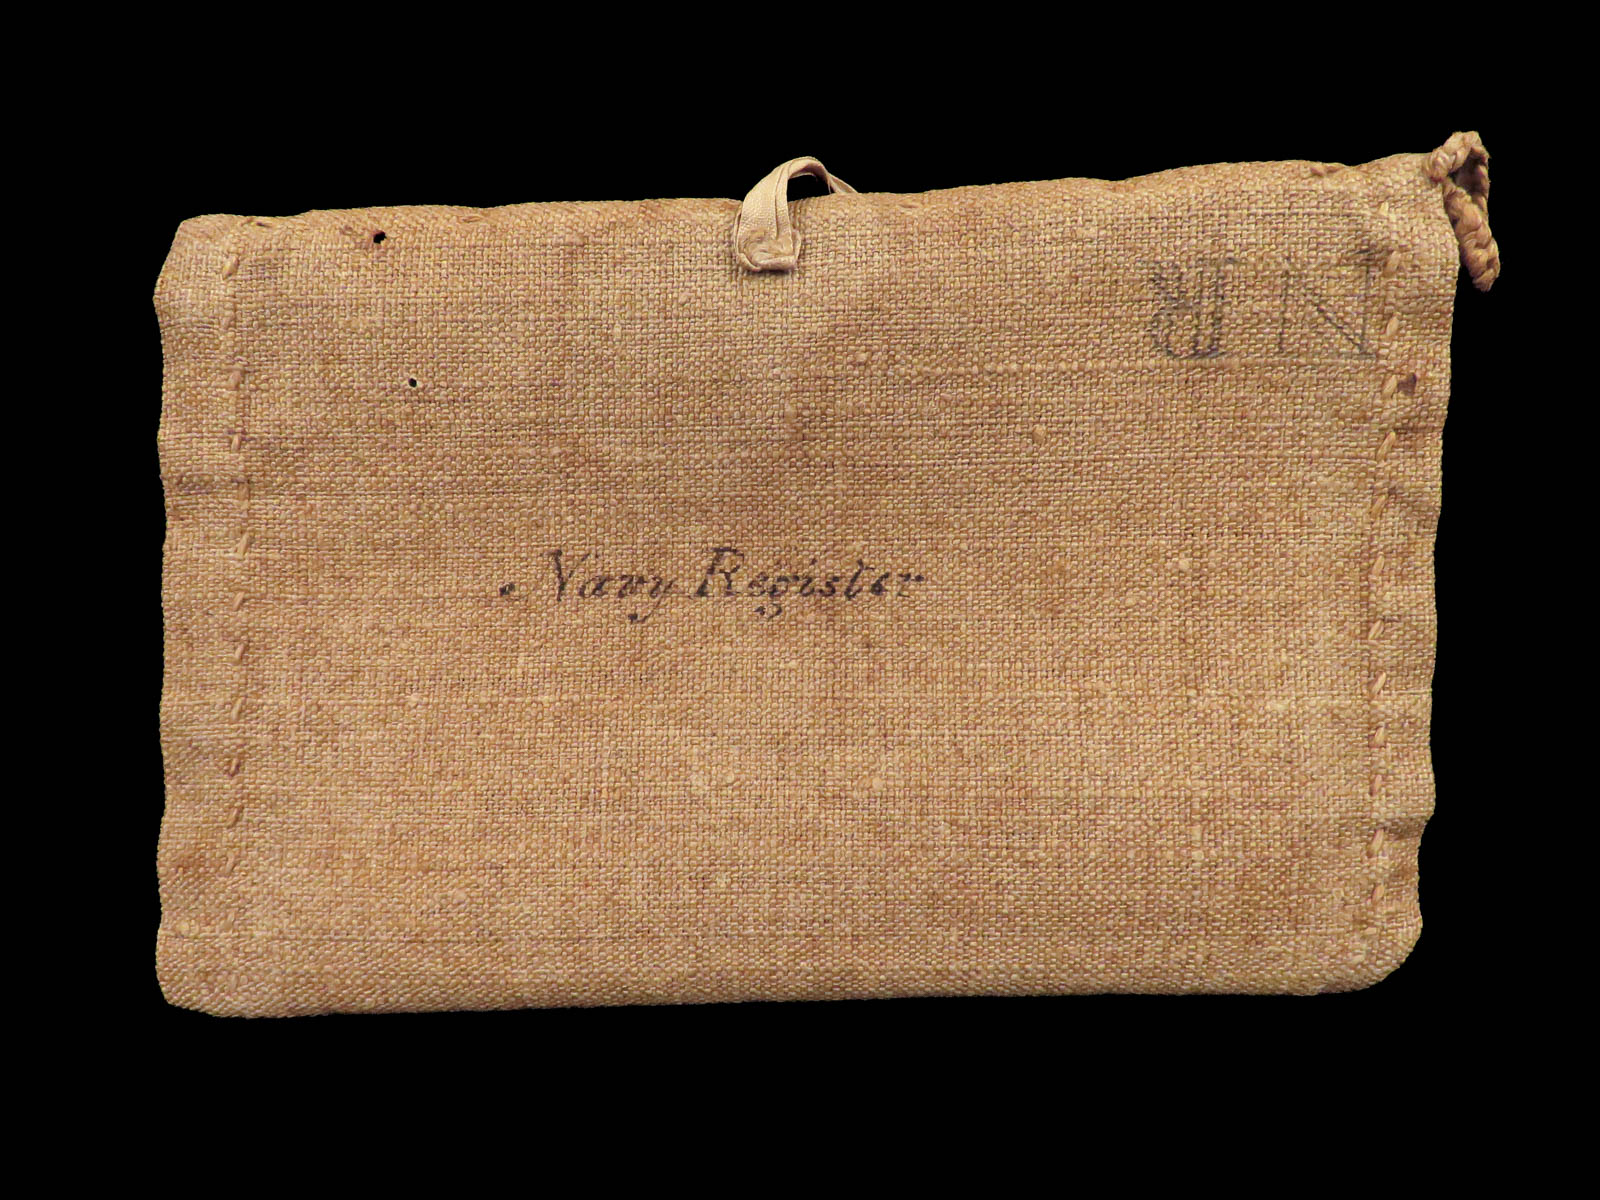 N R
Navy Register